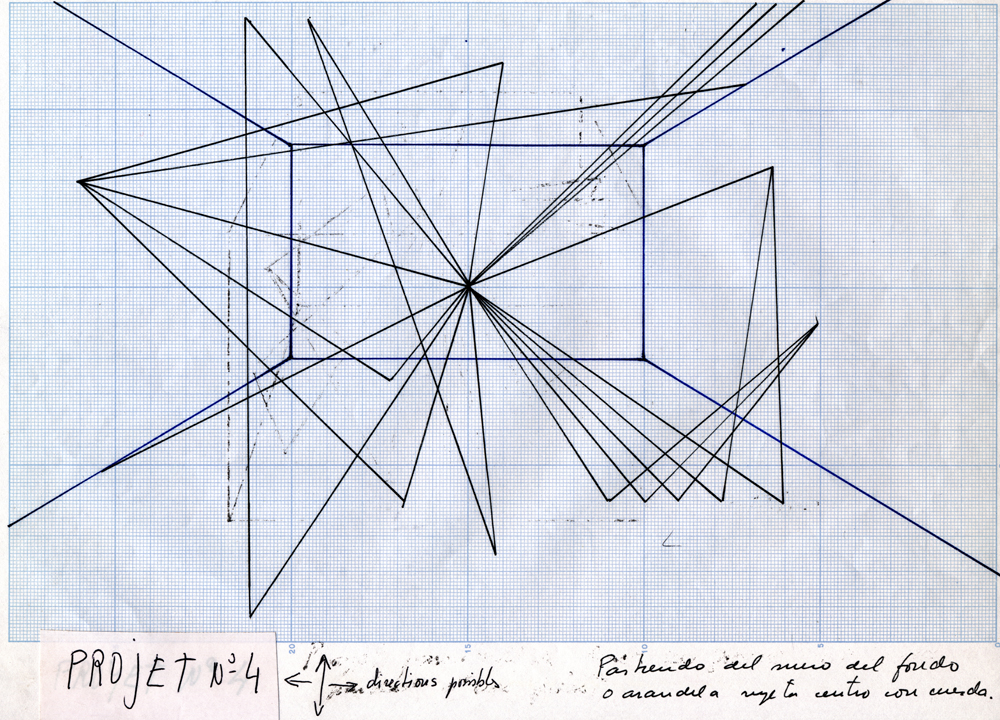 20
15
10
5
0
PROJET Nº 4
directions possibles
Partiendo del muro del fondo
o arandela sujeta centro con cuerda.